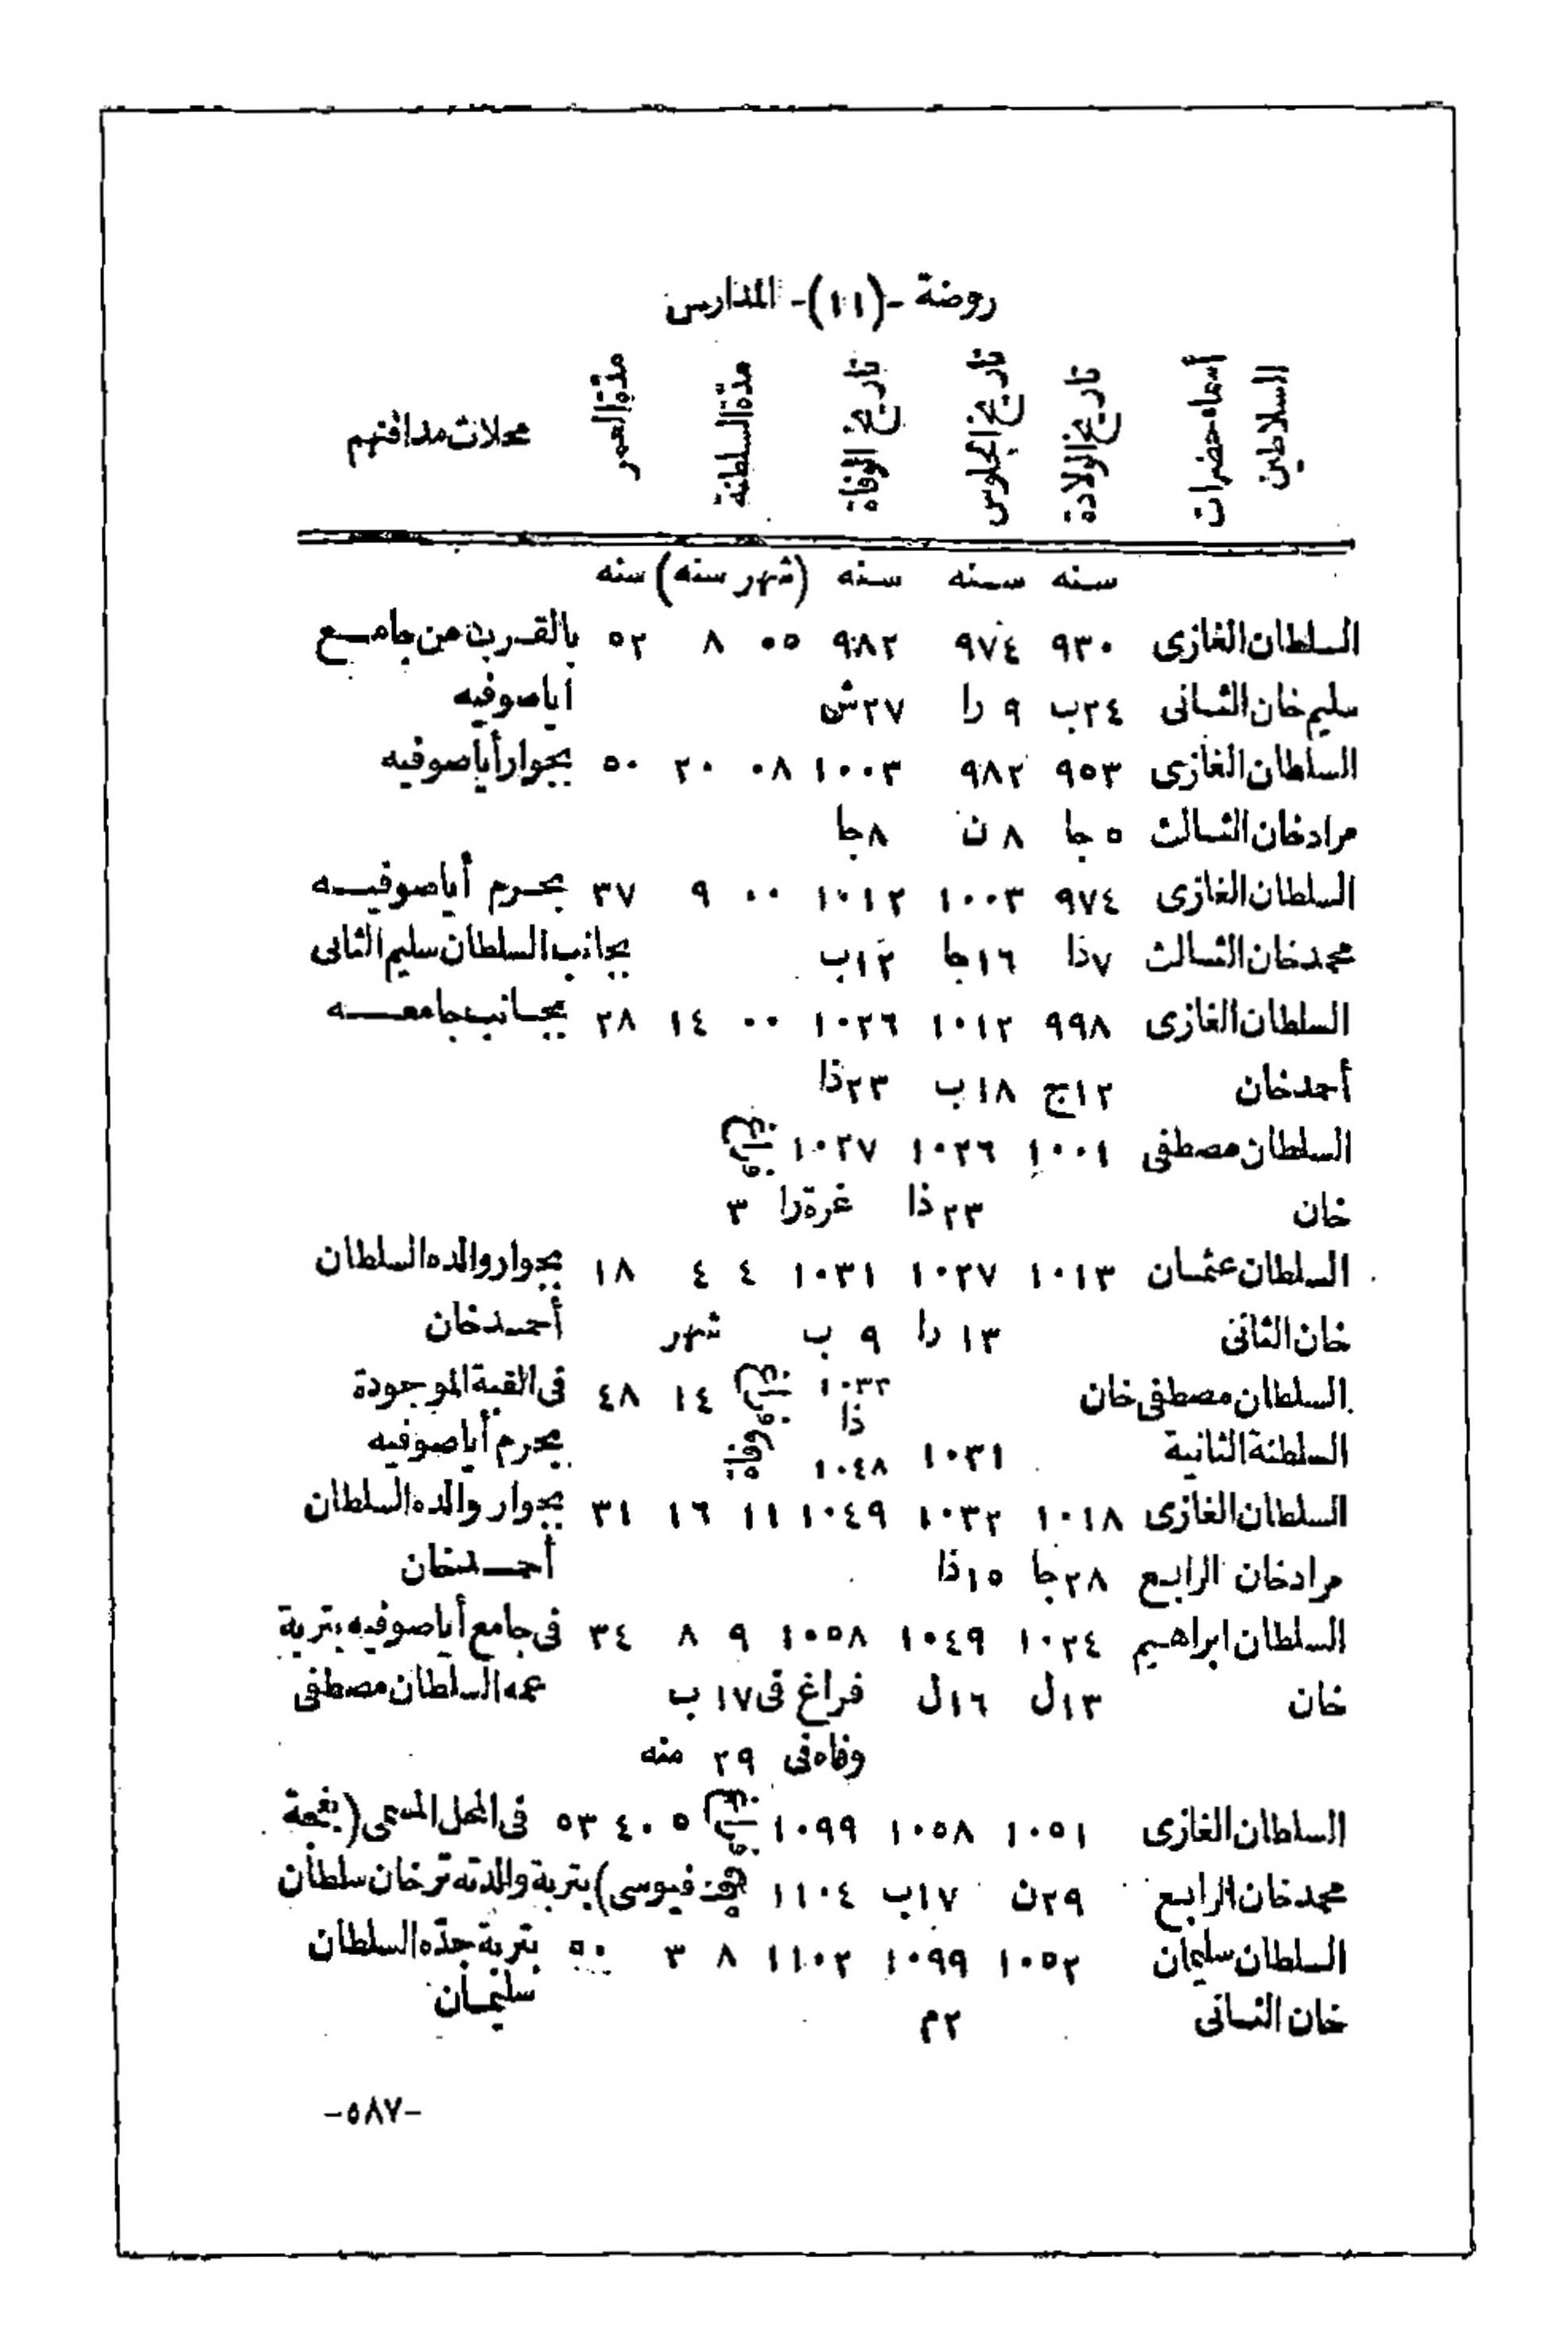 روضة -(١١)- المدارس
أسماء حضرات السلاطين تاريخ الولادة تاريخ الجلوس تاريخ الوفاة مدّة السلطنة مدّة العمر محلات مدافنهم
سنه سنه سنه (شهر سنه) سنه
السلطان الغازى ٩٣٠ ٩٧٤ ٩٨٢ ٠٥ ٨ ٥٢ بالقرب من جامع
سليم خان الثانى ٢٤ب ٩ را ٢٧ش أياصوفيه
السلطان الغازى ٩٥٣ ٩٨٢ ١٠٠٣ ٠٨ ٢٠ ٥٠ بجوار أياصوفيه
مراد خان الثالث ٥ جا ٨ ن ٨ جا
السلطان الغازى ٩٧٤ ١٠٠٣ ١٠١٢ ٠٠ ٩ ٣٧ بحرم أياصوفيه
محمد خان الثالث ٧ذا ١٦جا ١٢ب بجانب السلطان سليم الثانى
السلطان الغازى ٩٩٨ ١٠١٢ ١٠٢٦ ٠٠ ١٤ ٢٨ بجانب جامعه
أحمد خان ١٢ج ١٨ب ٢٣ذا
السلطان مصطفى ١٠٠١ ١٠٢٦ ١٠٢٧ فراغ
خان ٢٣ذا غرة را ٣
السلطان عثمان ١٠١٣ ١٠٢٧ ١٠٣١ ٤ ٤ ١٨ بجوار والده السلطان
خان الثانى ١٣ را ٩ ب شهر أحمد خان
السلطان مصطفى خان ١٠٣٢ ذا فراغ ١٤ ٤٨ فى القبة الموجودة
السلطنة الثانية ١٠٣١ ١٠٤٨ وفاة بحرم أياصوفيه
السلطان الغازى ١٠١٨ ١٠٣٢ ١٠٤٩ ١١ ١٦ ٣١ بجوار والده السلطان
مراد خان الرابع ٢٨جا ١٥ذا أحمد خان
السلطان ابراهيم ١٠٢٤ ١٠٤٩ ١٠٥٨ ٩ ٨ ٣٤ فى جامع أياصوفيه بتربة
خان ١٣ل ١٦ل فراغ فى ١٧ ب عمه السلطان مصطفى
وفاه فى ٢٩ منه
السلطان الغازى ١٠٥١ ١٠٥٨ ١٠٩٩ فراغ ٥ ٤٠ ٥٣ فى المحل المسمى (بغجة
محمد خان الرابع ٢٩ن ١٧ب ١١٠٤ فيوسى) بتربة والدته ترخان سلطان
السلطان سليمان ١٠٥٢ ١٠٩٩ ١١٠٢ ٨ ٣ ٥٠ بتربة جدّه السلطان
خان الثانى ٢م سليمان
-٥٨٧-